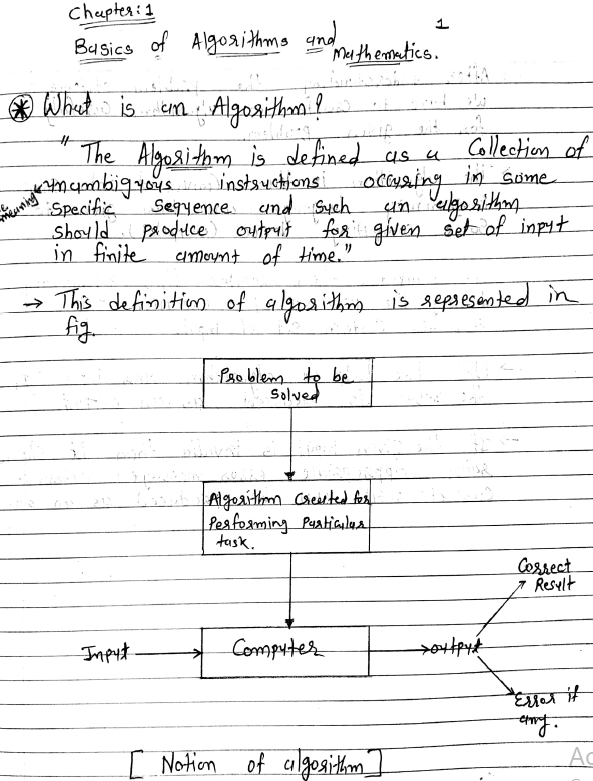 Chapter: 1
1
Basics of Algorithms and Mathematics.
What is an Algorithm?
" The Algorithm is defined as a Collection of
unambiguous instructions occuring in some
meaning
specific sequence and such an algorithm
should produce output for given set of input
in finite amount of time."
→ This definition of algorithm is represented in
fig.
Problem to be
solved
Algorithm Created for
Performing Particular
task.
Correct
Result
Input
Computer
output
Error if
any.
[ Notion of algorithm ]